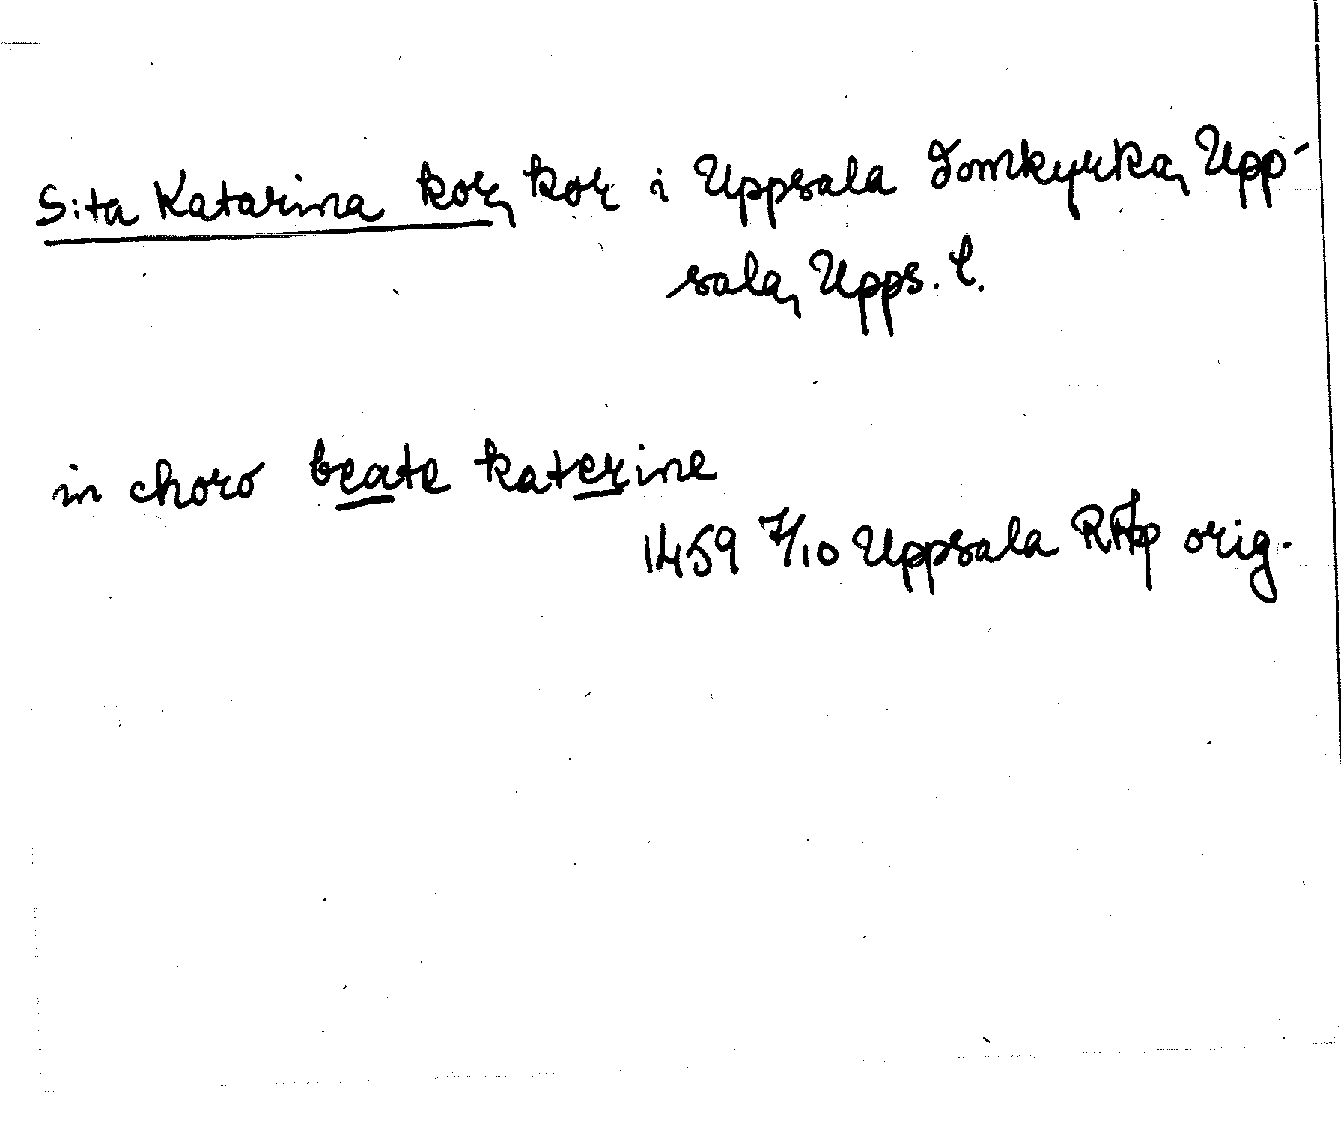 S:ta Katarina kor, kor i Uppsala domkyrka, Upp-
sala, Upps. l.
in choro beate katerine
1459 7/10 Uppsala RAp orig.